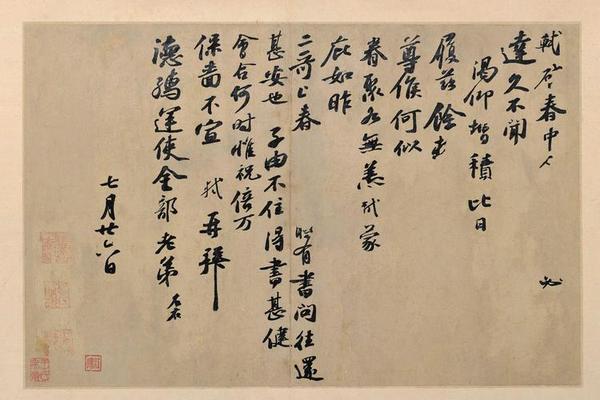 軾啓春中人 必
達久不聞
渴仰增積比日
履茲餘
尊候何似
眷聚各無恙軾蒙
庇如昨
二哥上春 有書問往還
甚安也 子由不住得書甚健
會合何時惟祝倍万
保嗇不宣 軾再拜
德孺運使金部老弟左右
七月廿六日